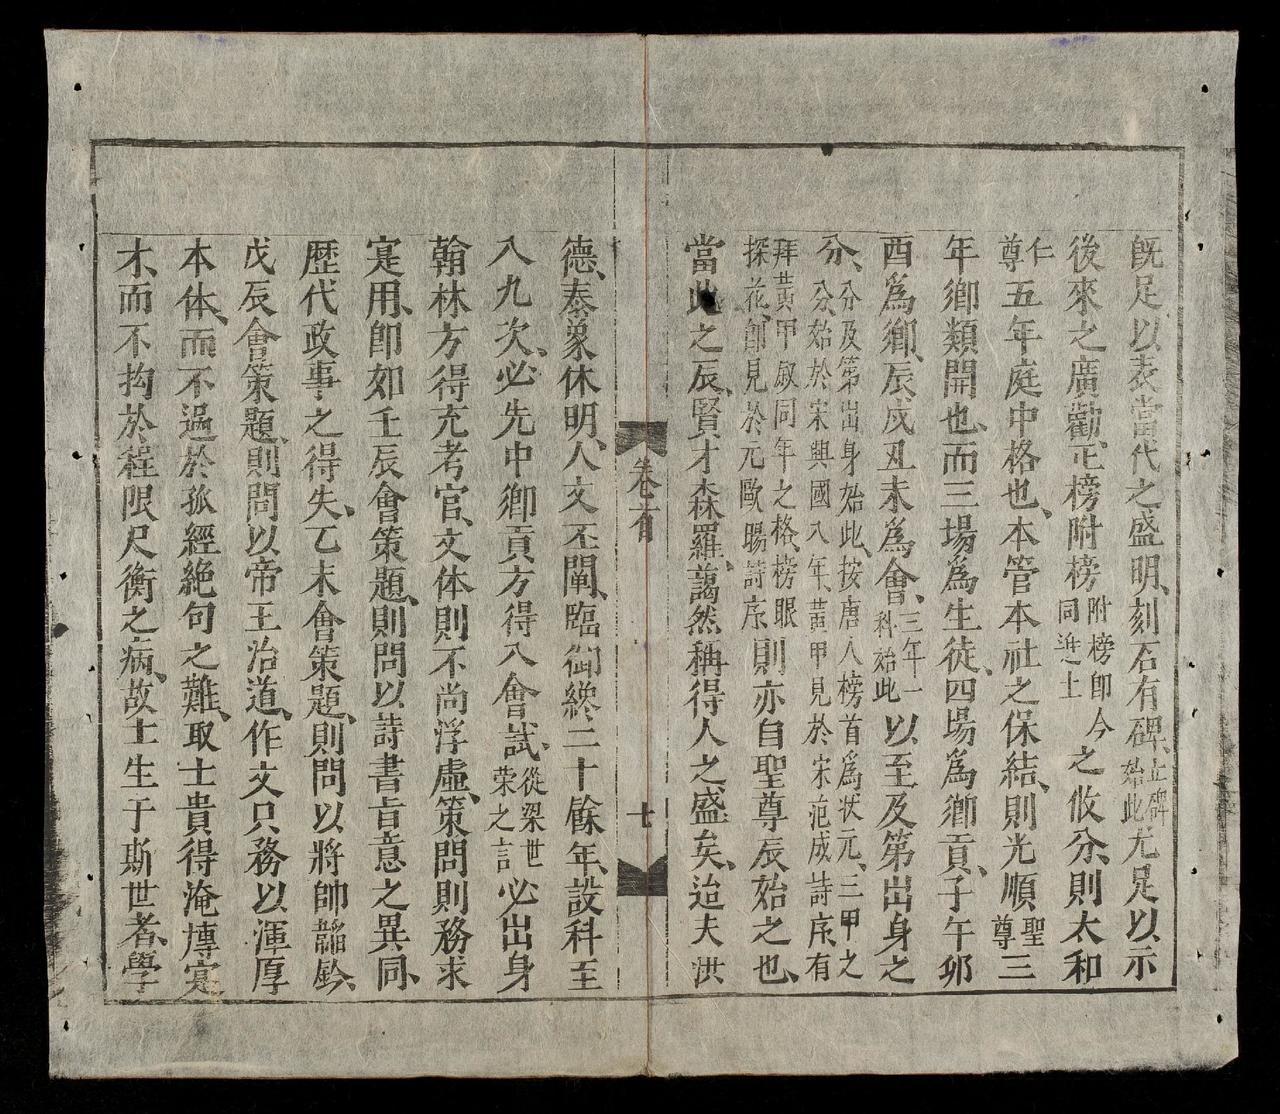 既足以表當代之盛明、刻石有碑、立碑始此尤足以示
後來之廣勸、正榜附榜附榜即今同進士之攸分、則太和
仁尊五年庭中格也、本管本社之保結、則光順聖尊三
年鄉類開也、而三場爲生徒、四場爲鄉貢、子午卯
酉爲鄉、辰戌丑未爲會、三年一科始此以至及第出身之
分、分及第出身始此、按唐人榜首爲状元、三甲之分、始於宋興國八年、黄甲見於宋范成詩序、有
拜黄甲叙同年之格、榜眼探花、即見於元歐陽詩序則亦自聖尊辰始之也、
當此之辰、賢才森羅、藹然稱得人之盛矣、迨夫洪
卷首
七
德、泰象休明、人文丕闡、臨御終二十餘年、設科至
八九次、必先中鄉貢方得入會試、從梁世荣之言必出身
翰林方得充考官、文体則不尚浮虛、策問則務求
寔用、即如壬辰會策題、則問以詩書旨意之異同、
歷代政事之得失、乙未會策題、則問以將帥韜鈐、
戊辰會策題、則問以帝王治道、作文只務以渾厚
本体、而不過於孤經絶句之難、取士貴得淹博寔
才、而不拘於程限尺衡之病、故士生于斯世者、學